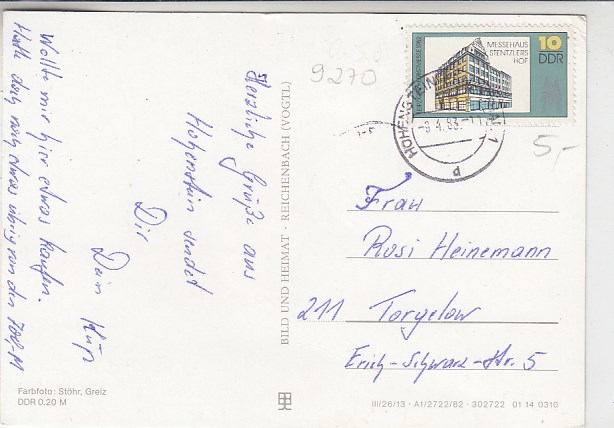 Herzliche Grüße aus
Hohenstein sendet
Dir
Dein
Wollte mir hier etwas kaufen.
Hatte doch noch etwas übrig von den 700,-M
9270
MESSEHAUS
STENTZLERS
HOF
10
DDR
HOHENSTEIN
1
-9.4.83.-11
d
5,-
Frau
Rosi Heinemann
211 Torgelow
Erich-Schwarz-Str. 5
BILD UND HEIMAT · REICHENBACH (VOGTL)
Farbfoto: Stöhr, Greiz
DDR 0,20 M
III/26/13 · A1/2722/82 · 302722 01 14 0310